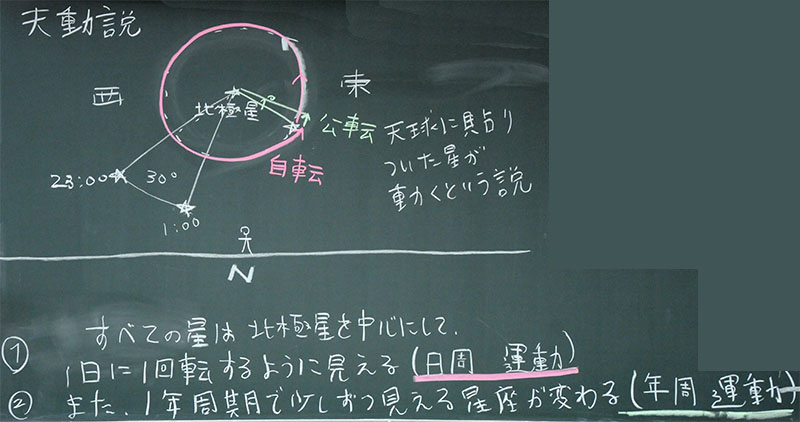 天動説
西
東
北極星
1°
公転
自転
天球に貼り
ついた星が
動くという説
23:00
30°
1:00
N
① すべての星は北極星を中心にして、
1日に1回転するように見える(日周 運動)
② また、1年周期で少しずつ見える星座が変わる(年周 運動)